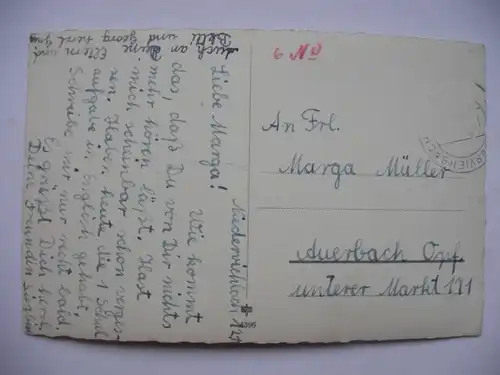 Niederviehbach
Liebe Marga!
Wie kommt
das, daß Du von Dir nichts
mehr hören läßt. Hast
mich scheinbar schon verges-
sen. Haben heute die 1 Schul
aufgabe in Englisch gehabt.
Schreibe mir nur recht bald.
Es grüßt Dich herzl.
Deine Freundin
auch an Deine Eltern und
und Georg
6 Nd
An Frl.
Marga Müller
Auerbach Opf.
unterer Markt 191
4396